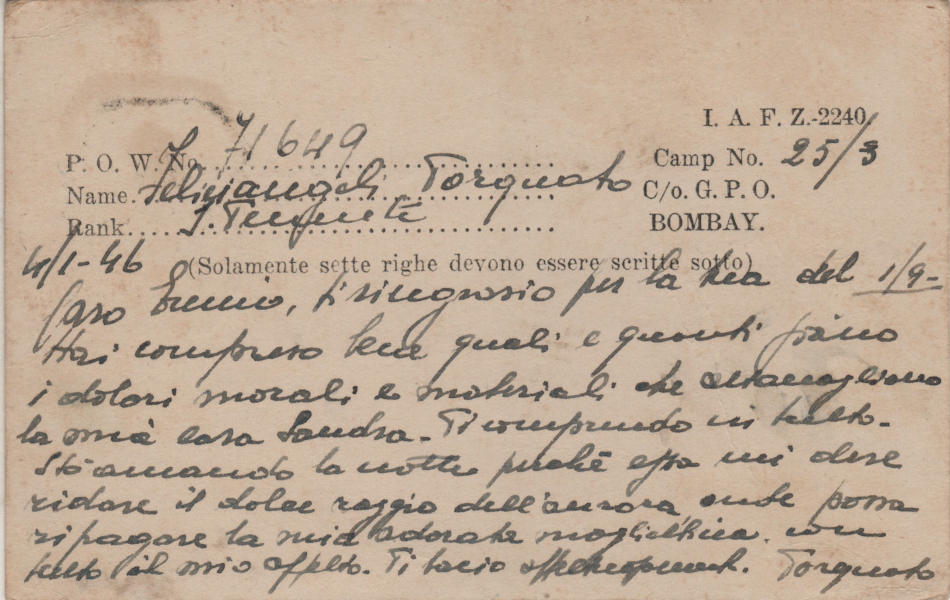 I. A. F. Z.-2240
P. O. W. No. 71649
Camp No. 25/3
Name. Feliciangeli Torquato
C/o. G. P. O.
Rank. S. Tenente
BOMBAY.
4/1-46 (Solamente sette righe devono essere scritte sotto)
Caro Ennio, ti ringrazio per la tua del 1/9-
Hai compreso bene quali e quanti siano
i dolori morali e materiali che
la mia cara Sandra. Ti comprendo in tutto.
Stò amando la notte perché essa mi deve
ridare il dolce raggio dell'aurora onde possa
ripagare la mia adorata mogliettina con
tutto il mio affetto. Ti bacio affettuosamente. Torquato